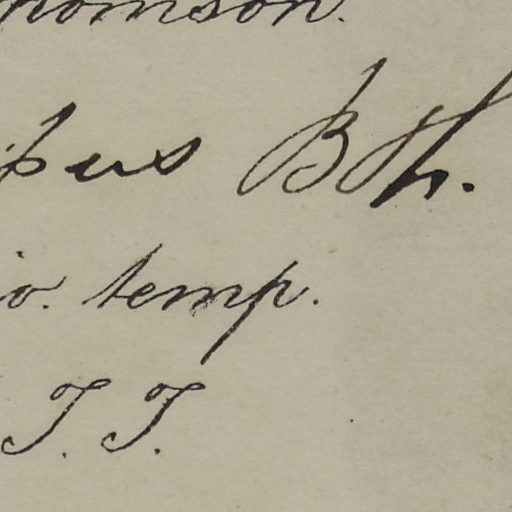 homson.
pus Bth.
io. temp.
T. T.